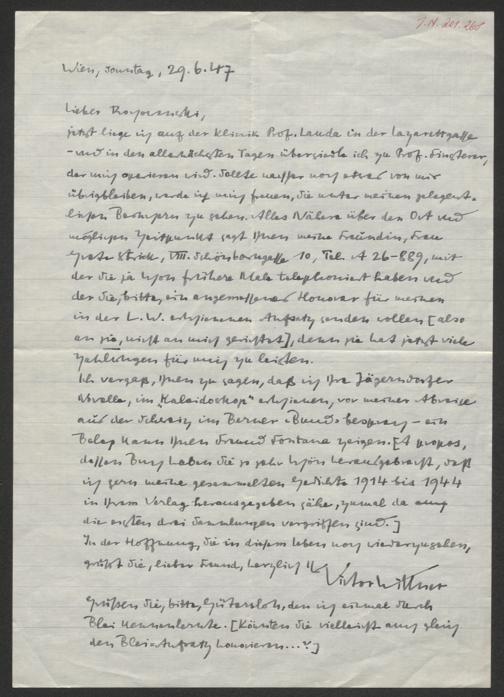 J.N. 201.268
Wien, Sonntag, 29.6.47
Lieber
jetzt liege ich auf der Klinik Prof. Lauda in der Lazarettgasse
– und in den allernächsten Tagen übersiedle ich zu Prof. Finsterer,
der mich operieren wird. Sollte nachher noch etwas von mir
übrigbleiben, werde ich mich freuen, Sie unter meinen gelegent-
lichen Besuchern zu sehen. Alles Nähere über den Ort und
möglichen Zeitpunkt sagt Ihnen meine Freundin, Frau
Grete VIII. Schönborngasse 10, Tel. A 26-889, mit
der Sie ja schon frühere Male telephoniert haben und
der Sie, bitte, ein angemessenes Honorar für meinen
in der L.W. erschienenen Aufsatz senden wollen [also
an sie, nicht an mich gerichtet], denn sie hat jetzt viele
Zahlungen für mich zu leisten.
Ich vergaß, Ihnen zu sagen, daß ich Ihre Jägerndorfer
Novelle, im "Kaleidoskop" erschienen, vor meiner Abreise
aus der Schweiz im Berner "Bund" besprach – ein
Beleg kann Ihnen Freund Fontana zeigen. [A propos,
dessen Buch haben Sie so sehr schön herausgebracht, daß
ich gern meine gesammelten Gedichte 1914 bis 1944
in Ihrem Verlag herausgegeben sähe, zumal da auch
die ersten drei Sammlungen vergriffen sind.]
In der Hoffnung, Sie in diesem Leben noch wiederzusehen,
grüßt Sie, lieber Freund, herzlich Ihr
Victor Wittner
Grüßen Sie, bitte, Gütersloh, den ich einmal durch
Blei kennenlernte. [Könnten Sie vielleicht auch gleich
den Blei-Aufsatz honorieren...?]